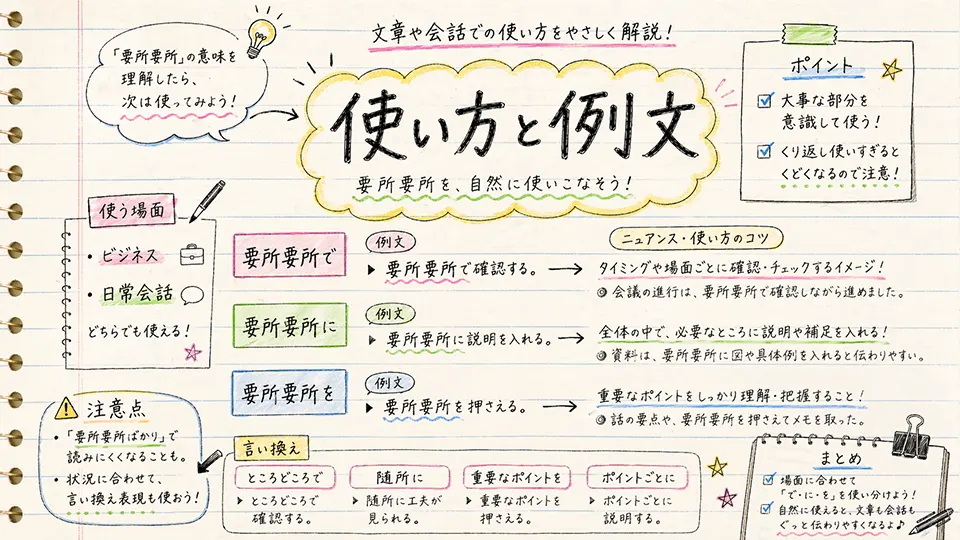 「要所要所」の意味を
理解したら、
次は使ってみよう！
文章や会話での使い方をやさしく解説！
使い方と例文
要所要所を、自然に使いこなそう！
ポイント
大事な部分を
意識して使う！
くり返し使いすぎると
くどくなるので注意！
使う場面
・ビジネス
・日常会話
どちらでも使える！
要所要所で
例文
▶ 要所要所で確認する。
ニュアンス・使い方のコツ
タイミングや場面ごとに確認・チェックするイメージ！
◎ 会議の進行は、要所要所で確認しながら進めました。
要所要所に
例文
▶ 要所要所に説明を入れる。
全体の中で、必要なところに説明や補足を入れる！
◎ 資料は、要所要所に図や具体例を入れると伝わりやすい。
要所要所を
例文
▶ 要所要所を押さえる。
重要なポイントをしっかり理解・把握すること！
◎ 話の要点や、要所要所を押さえてメモを取った。
注意点
・「要所要所ばかり」で
読みにくくなることも。
・状況に合わせて、
言い換え表現も使おう！
言い換え
ところどころで
▶ ところどころで
確認する。
随所に
▶ 随所に工夫が
見られる。
重要なポイントを
▶ 重要なポイントを
押さえる。
ポイントごとに
▶ ポイントごとに
説明する。
まとめ
場面に合わせて
「で・に・を」を使い分けよう！
自然に使えると、文章も会話も
ぐっと伝わりやすくなるよ♪